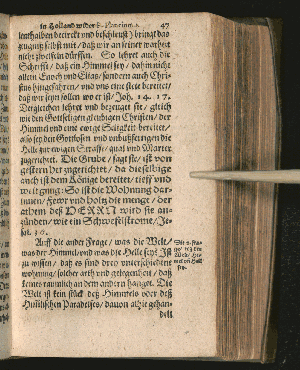 in Holland wider 47
lenthalben decreckt und beschleust) bringt das
zeugnuß selbst mit / daß wir an seiner warheit
nicht zweifeln dürffen. So lehret auch die
Schrifft / daß ein Himmel sey / dahin nicht
allein Enoch und Elias / sondern auch Chri-
stus hingefahren / und uns eine stete bereitet /
daß wir seyn sollen wo er ist / Joh. 14. 17.
Dergleichen lehret und bezeuget sie / gleich
wie den Gottseligen gleubigen Christen / der
Himmel und eine ewige Säligkeit bereitet /
also sey den Gottlosen und unbußfertigen die
Helle zur ewigen Straffe / qual und Marter
zugerichtet. Die Grube / sagt sie / ist von
gestern her zugerichtet / da dieselbige
auch ist dem Könige bereitet / tieff und
weit gnug: So ist die Wohnung dar-
innen / fewr und holtz die menge / der
athem deß HERRN wird sie an-
zünden / wie ein Schwefelstrome / Je-
sai. 30.
Auff die ander Frage / was die Welt /
was der Himmel und was die Helle sey? Ist
zu wissen / daß es sind drey unterschiedene
wohnung / solcher arth und gelegenheit / daß
keines räumlich an dem andern hanget. Die
Welt ist kein stück deß Himmels oder deß
Hüllischen Paradeises / davon alhie gehan-
delt
Die 2. Fra-
ge / was die
Welt / Him-
mel und Hell
sey.